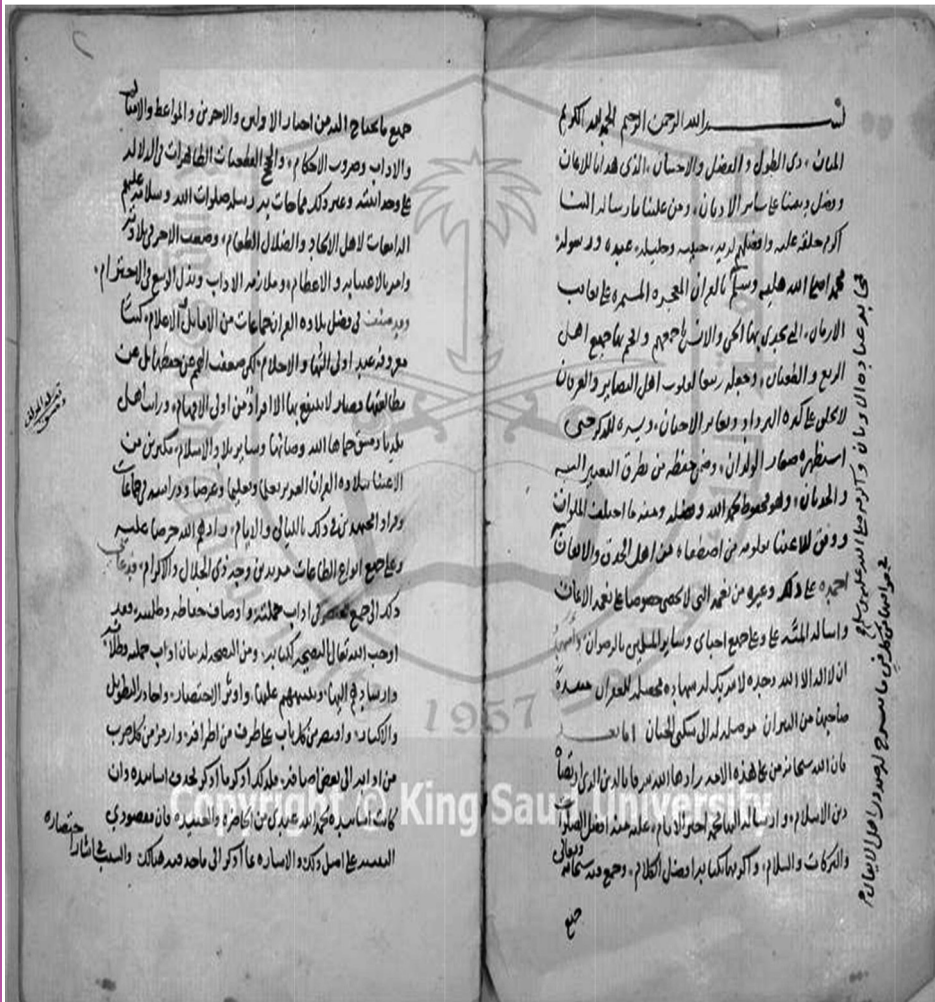 بسم الله الرحمن الرحيم الحمد لله الكريم
المنان، ذي الطول والفضل والاحسان، الذي هدانا للايمان
وفضل ديننا على ساير الاديان، ومن علينا بارساله الينا
اكرم خلقه عليه وافضلهم لديه، حبيبه وخليله، عبده ورسوله،
محمد صلى الله عليه وسلم بالقران المعجزة المستمرة على تعاقب
الازمان، التي تحدى بها الجن والانس باجمعهم وافحم بها جميع اهل
الزيغ والطغيان، وجعله ربيعا لقلوب اهل البصاير والعرفان
لا يخلق على كثرة الترداد وتغاير الاحيان، ويسره للذكر حتى
استظهره صغار الولدان، وضمن حفظه من تطرق التغيير اليه
والحدثان، وهو محفوظ بحمد الله وفضله ومنه ما اختلف الملوان
ووفق للاعتنا بعلومه من اصطفاه من اهل الحذق والاتقان
احمده على ذلك وغيره من نعمه التي لا تحصى خصوصا على نعمة الايمان
واساله المنة علي وعلى جميع احبابي وساير المسلمين بالرضوان واشهد
ان لا اله الا الله وحده لا شريك له شهادة محصلة للغفران منقذة
صاحبها من النيران موصلة له الى سكنى الجنان اما بعد
فان الله سبحانه من على هذه الامة زادها الله شرفا بالدين الذي ارتضاه
دين الاسلام، وارساله اليها محمد اخير الانام، عليه منه افضل الصلوات
والبركات والسلام، واكرمها بكتابه افضل الكلام، وجمع فيه سبحانه وتعالى
جميع
فمحا به عبادة الاوثان واكرمه صلى الله عليه وسلم
من كل فن ما ينشرح له صدور اهل الايقان
جميع ما يحتاج اليه من اخبار الاولين والاخرين والمواعظ والامثال
والاداب وضروب الاحكام، والحجج القطعيات الظاهرات في الدلالة
على وحدانيته وغير ذلك مما جات به رسله صلوات الله وسلامه عليهم
الدامغات لاهل الالحاد والضلال الطغام، وضعف الاجر في تلاوته
وامر بالاعتنا به والاعظام، وملازمة الاداب وبذل الوسع في الاحترام،
وقد صنف في فضل تلاوة القران جماعات من الاماثل والاعلام، كتبا
معروفة عند اولى النهى والاحلام، لكن ضعفت الهمم عن حفظها بل عن
مطالعتها وصار لا ينتفع بها الا افراد من اولى الافهام، ورايت اهل
بلدنا دمشق حماها الله وصانها وساير بلاد الاسلام، مكثرين من
الاعتنا بتلاوة القران العزيز تعلما وتعليما وعرضا ودراسة في جماعات
وفرادى مجتهدين في ذلك بالليالي والايام، زادهم الله حرصا عليه
وعلى جميع انواع الطاعات مريدين وجه ذي الجلال والاكرام، فدعاني
ذلك الى جمع مختصر في اداب حملته واوصاف حفاظه وطلبته، فقد
اوجب الله تعالى النصح لكتابه، ومن النصيحة له بيان اداب حملته وطلابه
وارشادهم اليها، وتنبيههم عليها، واوثر الاختصار، واحاذر التطويل
والاكثار، واقتصر من كل باب على طرف من اطرافه، وارمز من كل ضرب
من ادابه الى بعض اصنافه، فلذلك اكثر ما اذكره بحذف اسانيده وان
كانت اسانيده بحمد الله عندي من الحاضرة والعتيدة فان مقصودي
التنبيه على اصل ذلك، والاشارة بما اذكره الى ما حذفته هنالك، والسبب في ايثار اختصاره
1957
Copyright © King Saud University